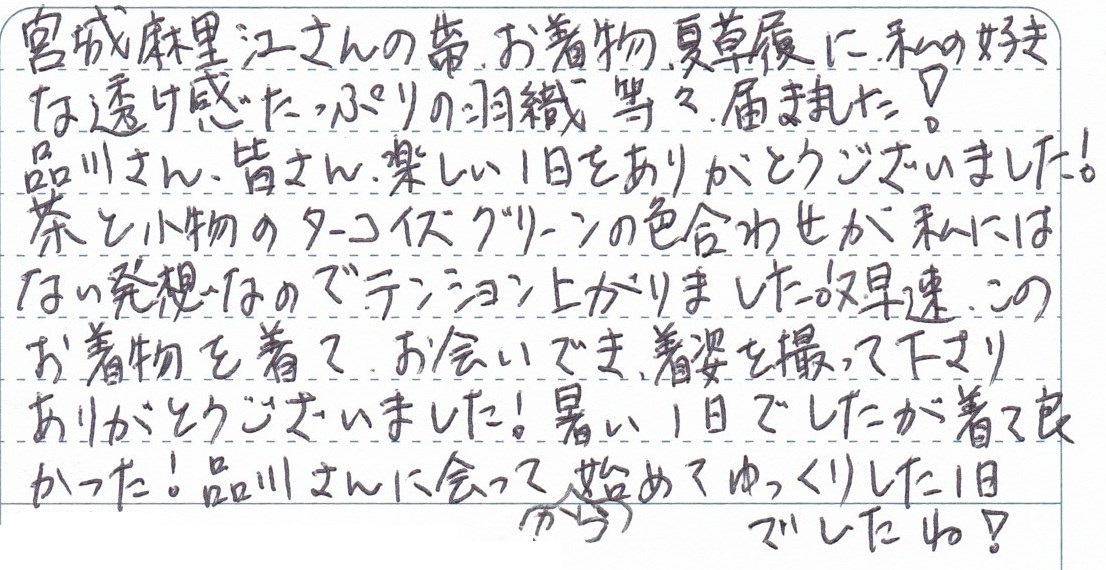 宮城麻里江さんの帯、お着物、夏草履に、私の好き
な透け感たっぷりの羽織 等々、届きました!
品川さん、皆さん、楽しい1日をありがとうございました!
茶と小物のターコイズグリーンの色合わせが 私には
ない発想なのでテンション上がりました。又早速、この
お着物を着て、お会いでき、着姿を撮って下さり
ありがとうございました!暑い1日でしたが着て良
かった!品川さんに会って 始めてゆっくりした1日
(から) でしたね!